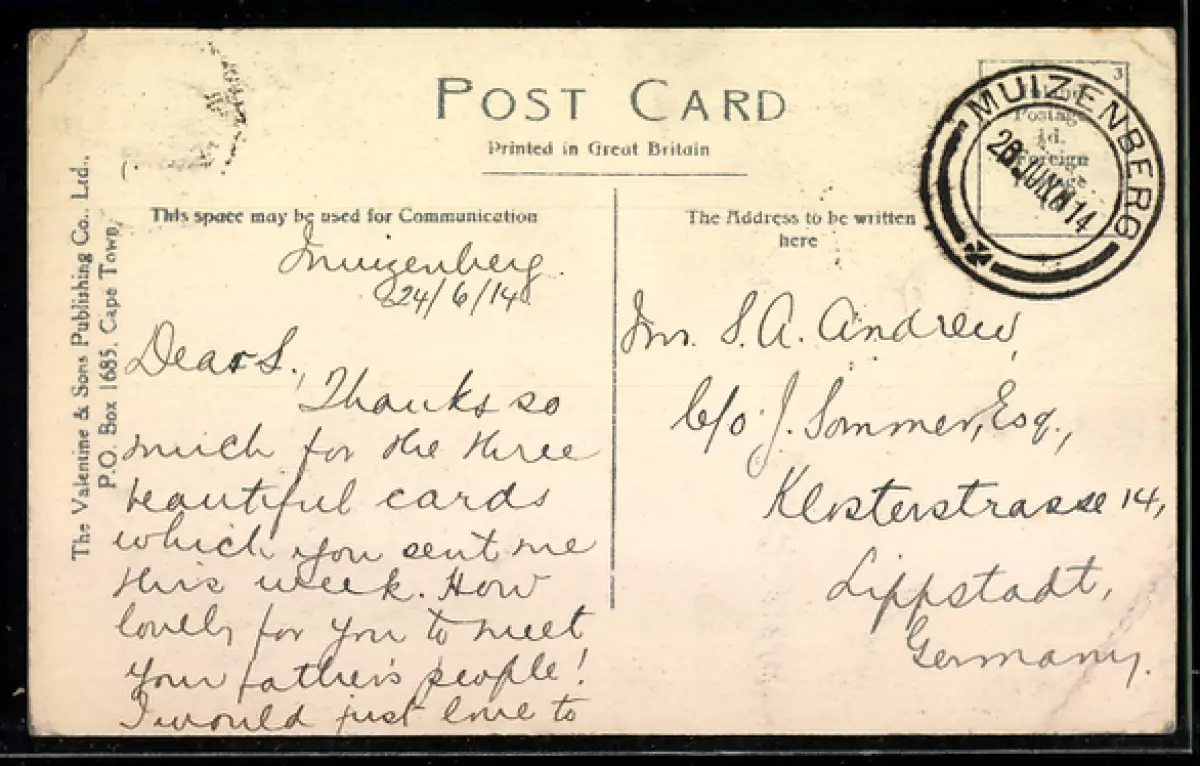 POST CARD
Printed in Great Britain
This space may be used for Communication
The Address to be written
here
The Valentine & Sons Publishing Co., Ltd.,
P.O. Box 1685, Cape Town,
MUIZENBERG
JUN
14
3
Postage
½d.
Foreign
Muizenberg.
24/6/14
Dear S.,
Thanks so
much for the three
beautiful cards
which you sent me
this week. How
lovely for you to meet
your father's people!
I would just love to
Mr. S. A. Andrew,
c/o J. Sommer, Esq.,
Klosterstrasse 14,
Lippstadt,
Germany.